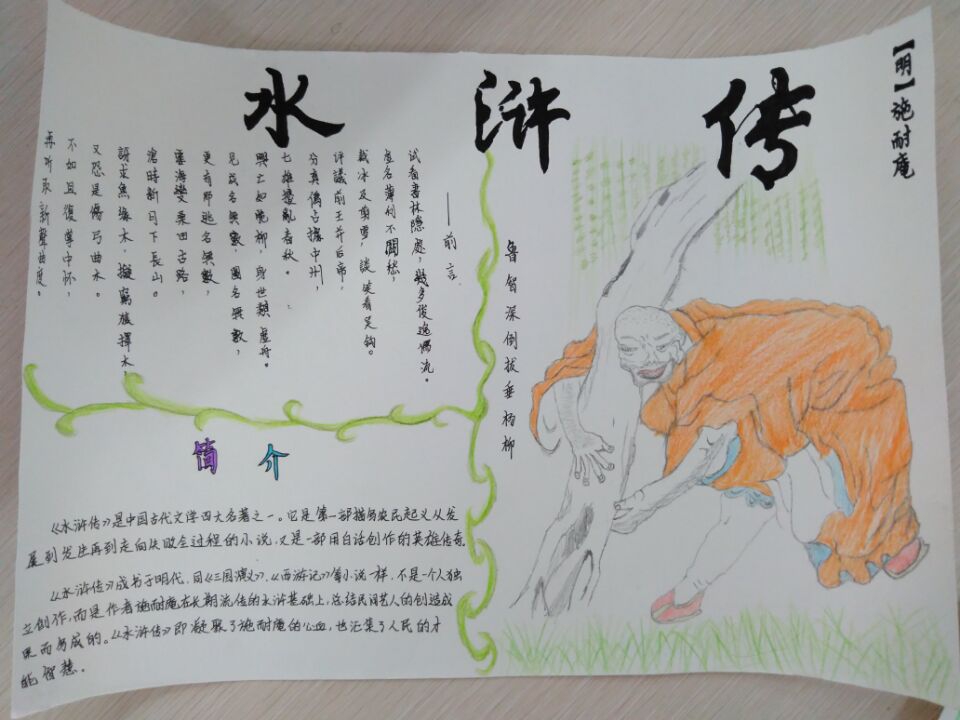 水 浒 传
【明】施耐庵
——前言
试看書林隐處,幾多俊逸偶流。
虚名薄利不關愁,
裁冰及剪雪,談笑看吴鈎。
評議前王并后帝,
分真偽占據中州,
七雄擾亂春秋。
興亡如脆柳,身世類虚舟。
見成名無數,圖名無數,
更有那逃名無數,
霎海變桑田古路,
滄時新月下長山。
訝求魚緣木,擬窮猿擇木
又恐是傷弓曲木。
不如且復掌中怀,
再听取新聲曲度。
鲁智深倒拔垂杨柳
简 介
《水浒传》是中国古代文学四大名著之一。它是第一部描写农民起义从发
展到发生再到走向失败全过程的小说,又是一部用白话创作的英雄传奇。
《水浒传》成书于明代,同《三国演义》、《西游记》等小说一样,不是一个人独
立创作,而是作者施耐庵在长期流传的水浒基础上,总结民间艺人的创造成
果而写成的。《水浒传》即凝聚了施耐庵的心血,也汇集了人民的才
能智慧。